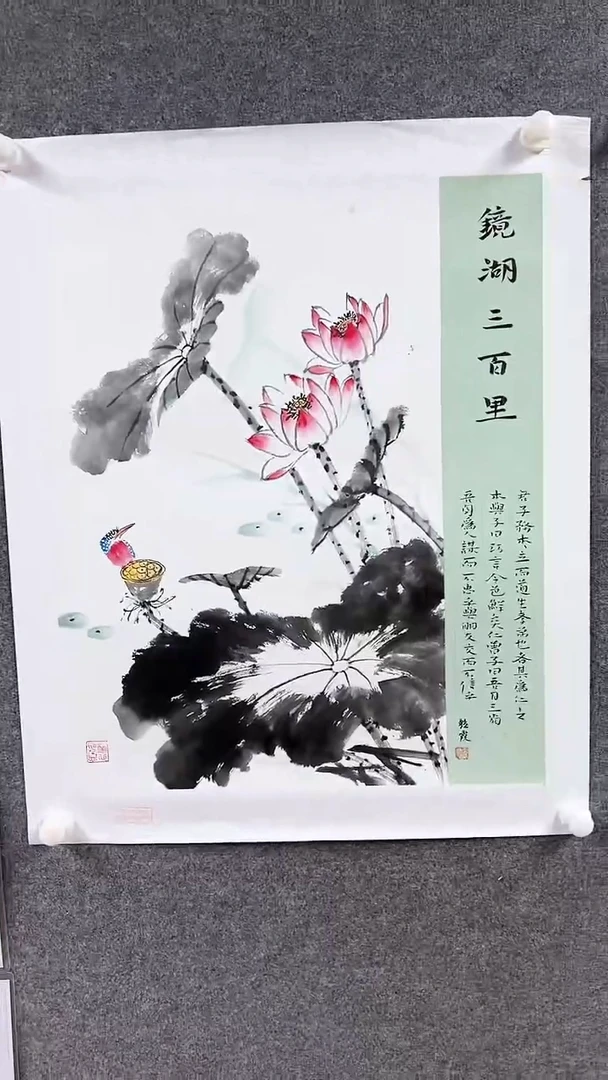 鏡湖三百里
君子務本立而道生孝弟也者其爲仁之
本與子曰巧言令色鮮矣仁曾子曰吾日三省
吾身爲人謀而不忠乎與朋友交而不信乎